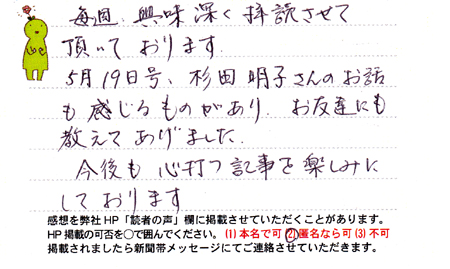 毎週、興味深く拝読させて
頂いております。
5月19日号、杉田明子さんのお話
も感じるものがあり、お友達にも
教えてあげました。
今後も心打つ記事を楽しみに
しております
感想を弊社HP「読者の声」欄に掲載させていただくことがあります。
HP掲載の可否を○で囲んでください。(1)本名で可(2)匿名なら可(3)不可
掲載されましたら新聞帯メッセージにてご連絡させていただきます。